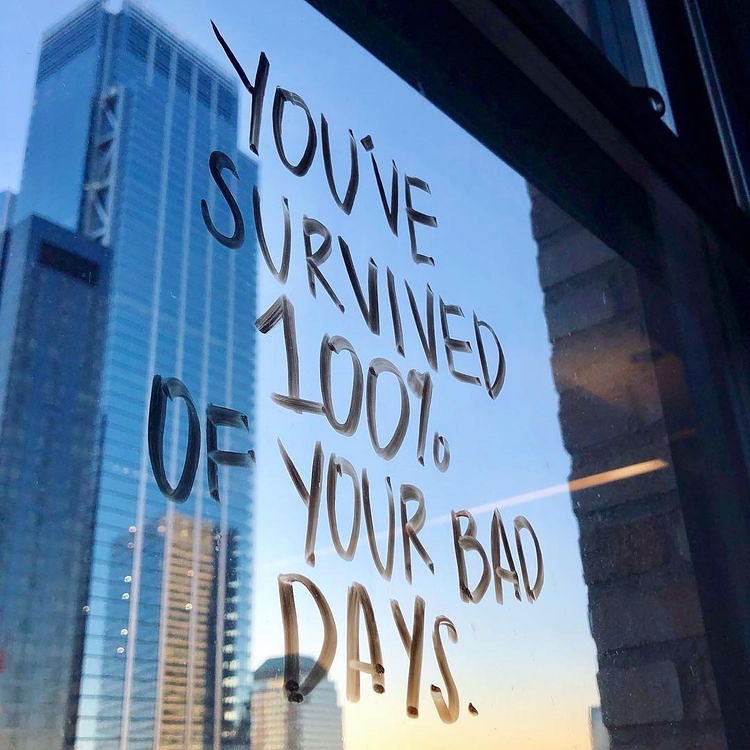 YOU'VE
SURVIVED
100%
OF YOUR BAD
DAYS.